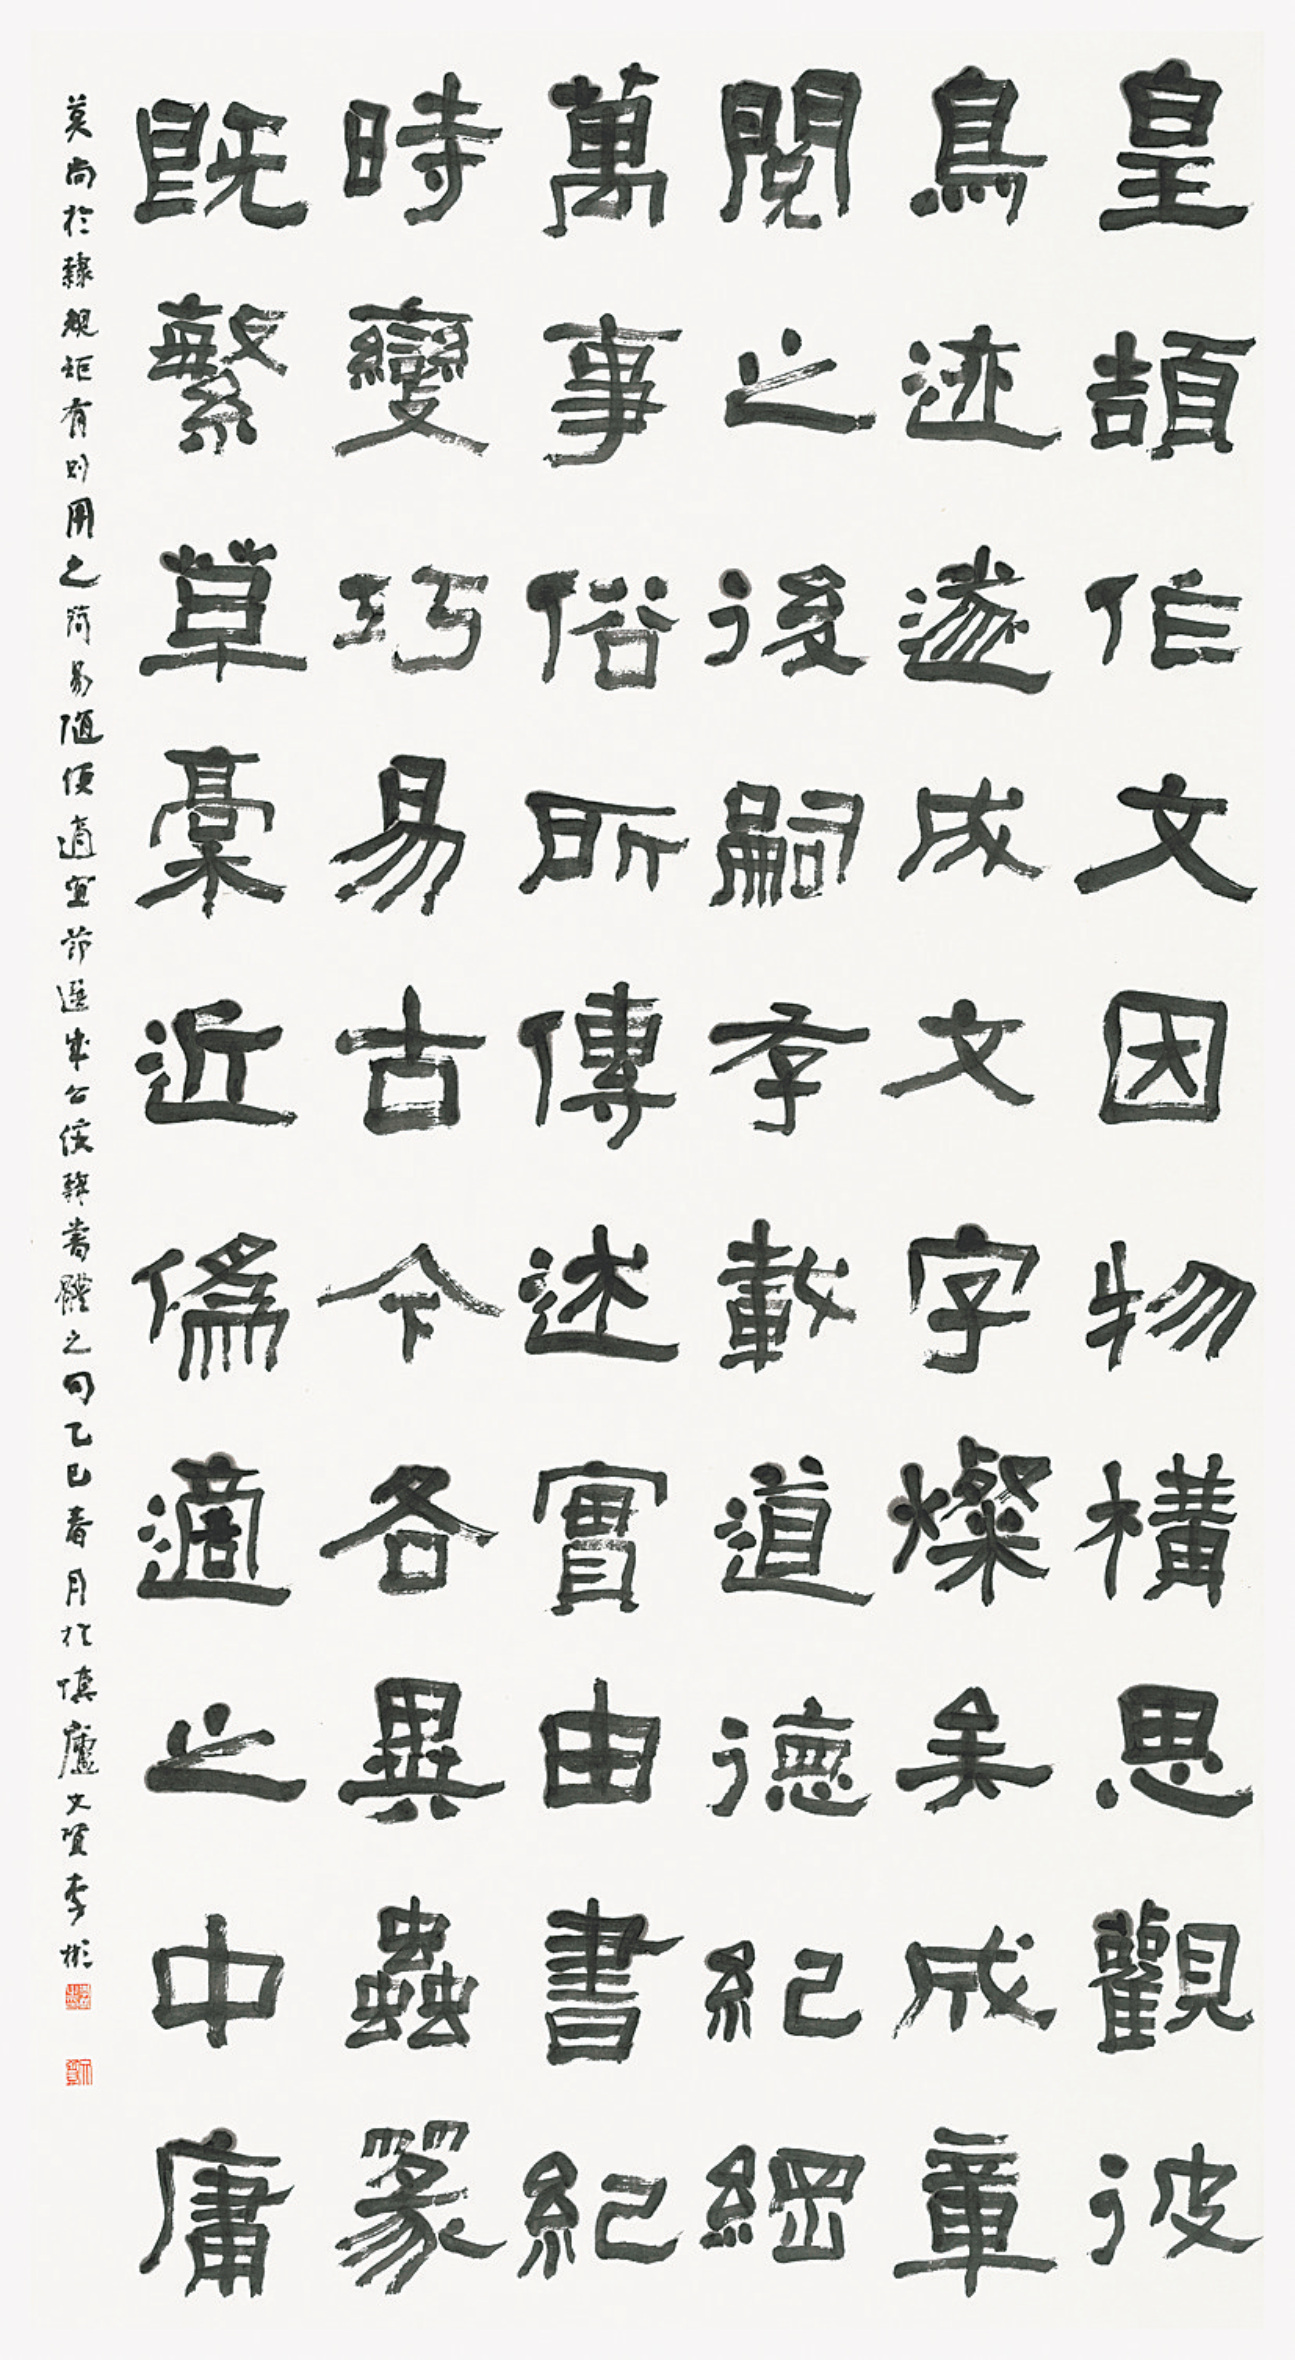 皇頡作文因物構思觀彼
鳥迹遂成文字燦矣成章
閱之後嗣存載道德紀綱
萬事俗所傳述實由書紀
時變巧易古今各異蟲篆
既繁草藁近偽適之中庸
莫尚於隸規矩有則用之簡易隨便適宜節選成公綏隸書體之句乙巳春月於慎廬文賢李彬